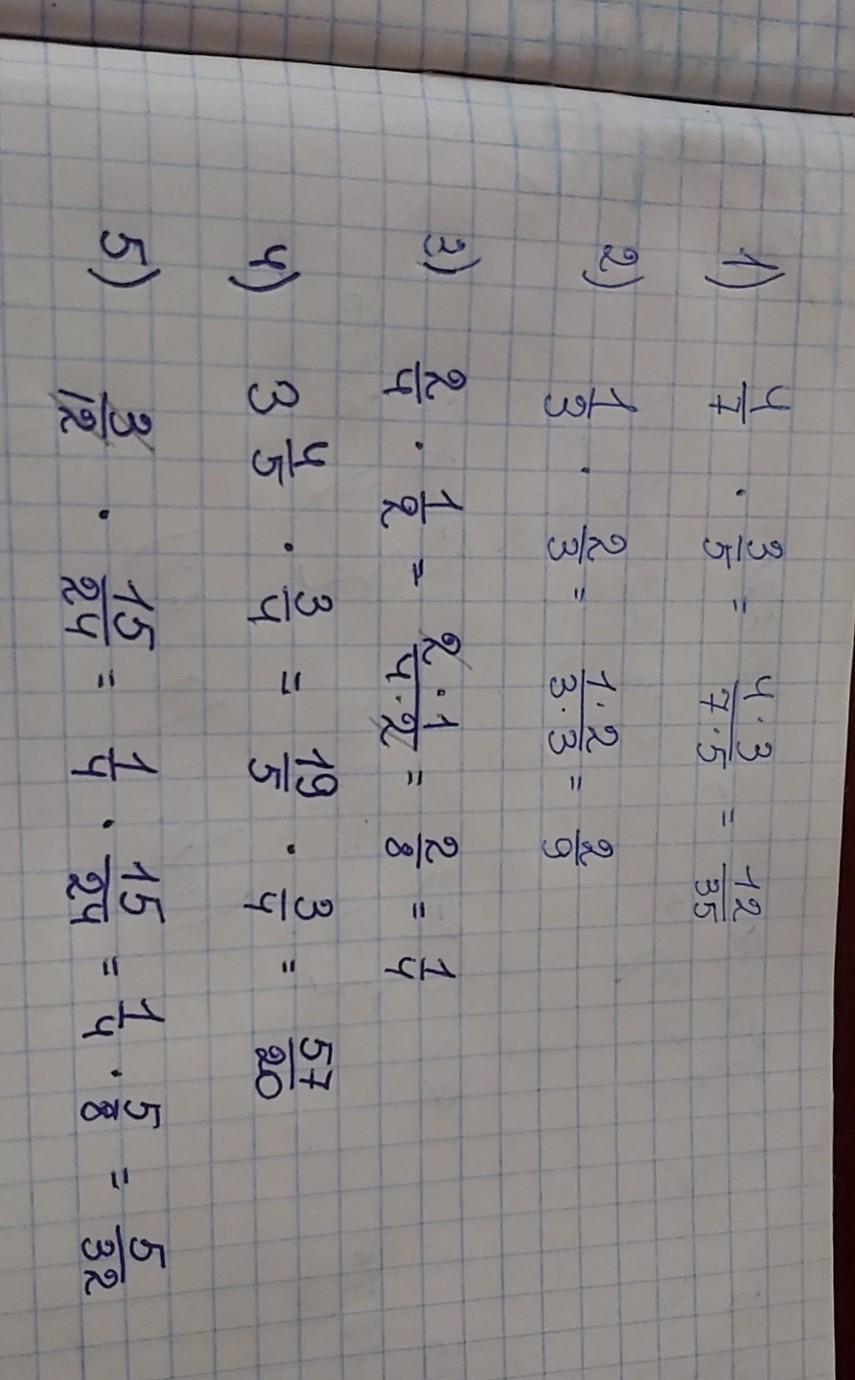 1) 4/7 · 3/5 = 4·3/7·5 = 12/35
2) 1/3 · 2/3 = 1·2/3·3 = 2/9
3) 2/4 · 1/2 = 2·1/4·2 = 2/8 = 1/4
4) 3 4/5 · 3/4 = 19/5 · 3/4 = 57/20
5) 3/12 · 15/24 = 1/4 · 15/24 = 1/4 · 5/8 = 5/32